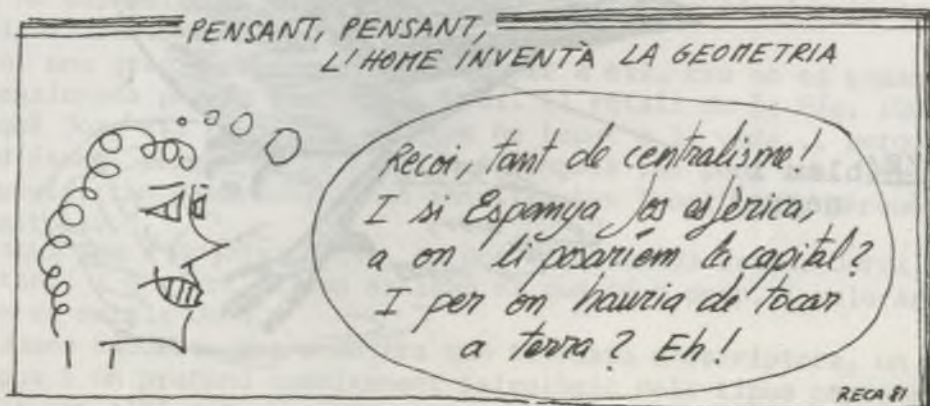 PENSANT, PENSANT,
L'HOME INVENTÀ LA GEOMETRIA
Recoi, tant de centralisme!
I si Espanya fos esfèrica,
a on li posariem la capital?
I per on hauria de tocar
a terra? Eh!
RECA 81